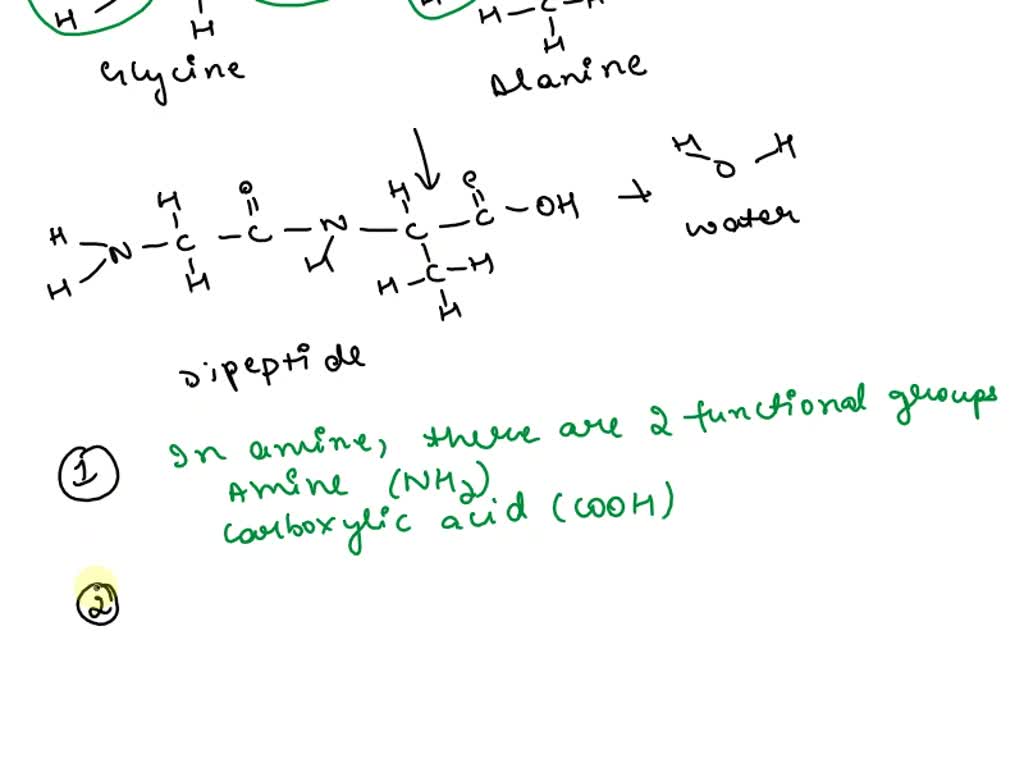 H H H C H
H H
Glycine Alanine
H O H O H O H
H N C C N C C OH + water
H H H H C H
H
Dipeptide
1 In amine, there are 2 functional groups
Amine (NH2)
Carboxylic acid (COOH)
2